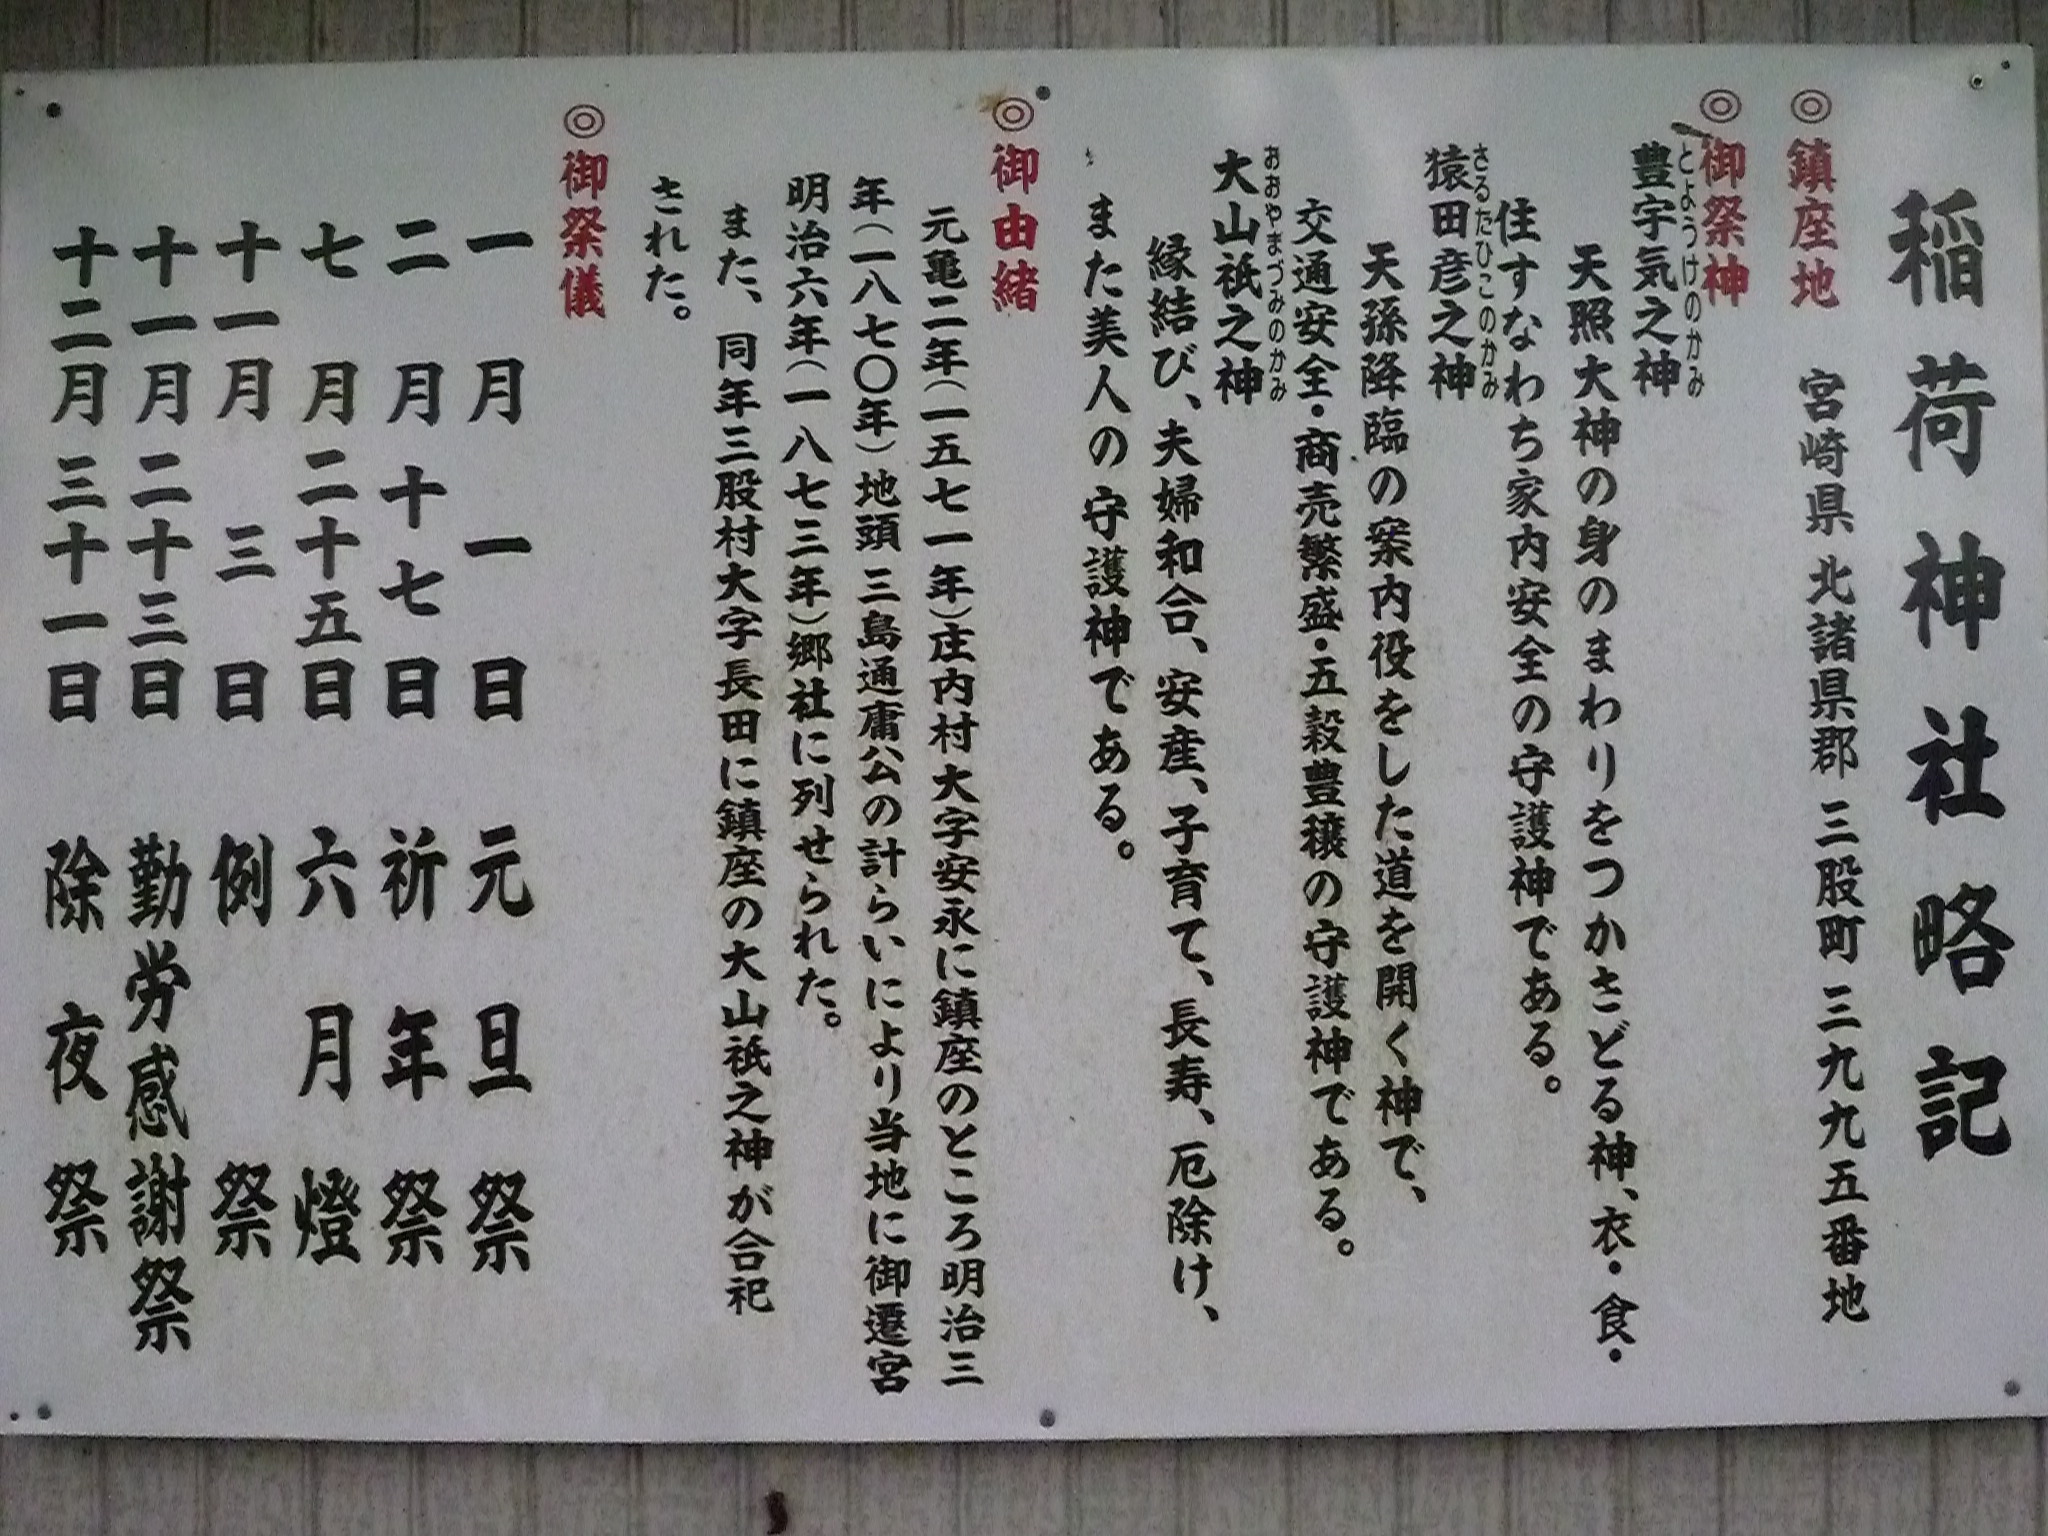 稲荷神社略記
◎鎮座地　宮崎県北諸県郡三股町三九九五番地
◎御祭神
とようけのかみ
豊宇気之神
天照大神の身のまわりをつかさどる神、衣・食・
住すなわち家内安全の守護神である。
さるたひこのかみ
猿田彦之神
天孫降臨の案内役をした道を開く神で、
交通安全・商売繁盛・五穀豊穣の守護神である。
おおやまづみのかみ
大山祇之神
縁結び、夫婦和合、安産、子育て、長寿、厄除け、
また美人の守護神である。
◎御由緒
元亀二年(一五七一年)庄内村大字安永に鎮座のところ明治三
年(一八七〇年)地頭三島通庸公の計らいにより当地に御遷宮
明治六年(一八七三年)郷社に列せられた。
また、同年三股村大字長田に鎮座の大山祇之神が合祀
された。
◎御祭儀
一月一日　元旦祭
二月十七日　祈年祭
七月二十五日　六月燈
十一月三日　例祭
十一月二十三日　勤労感謝祭
十二月三十一日　除夜祭